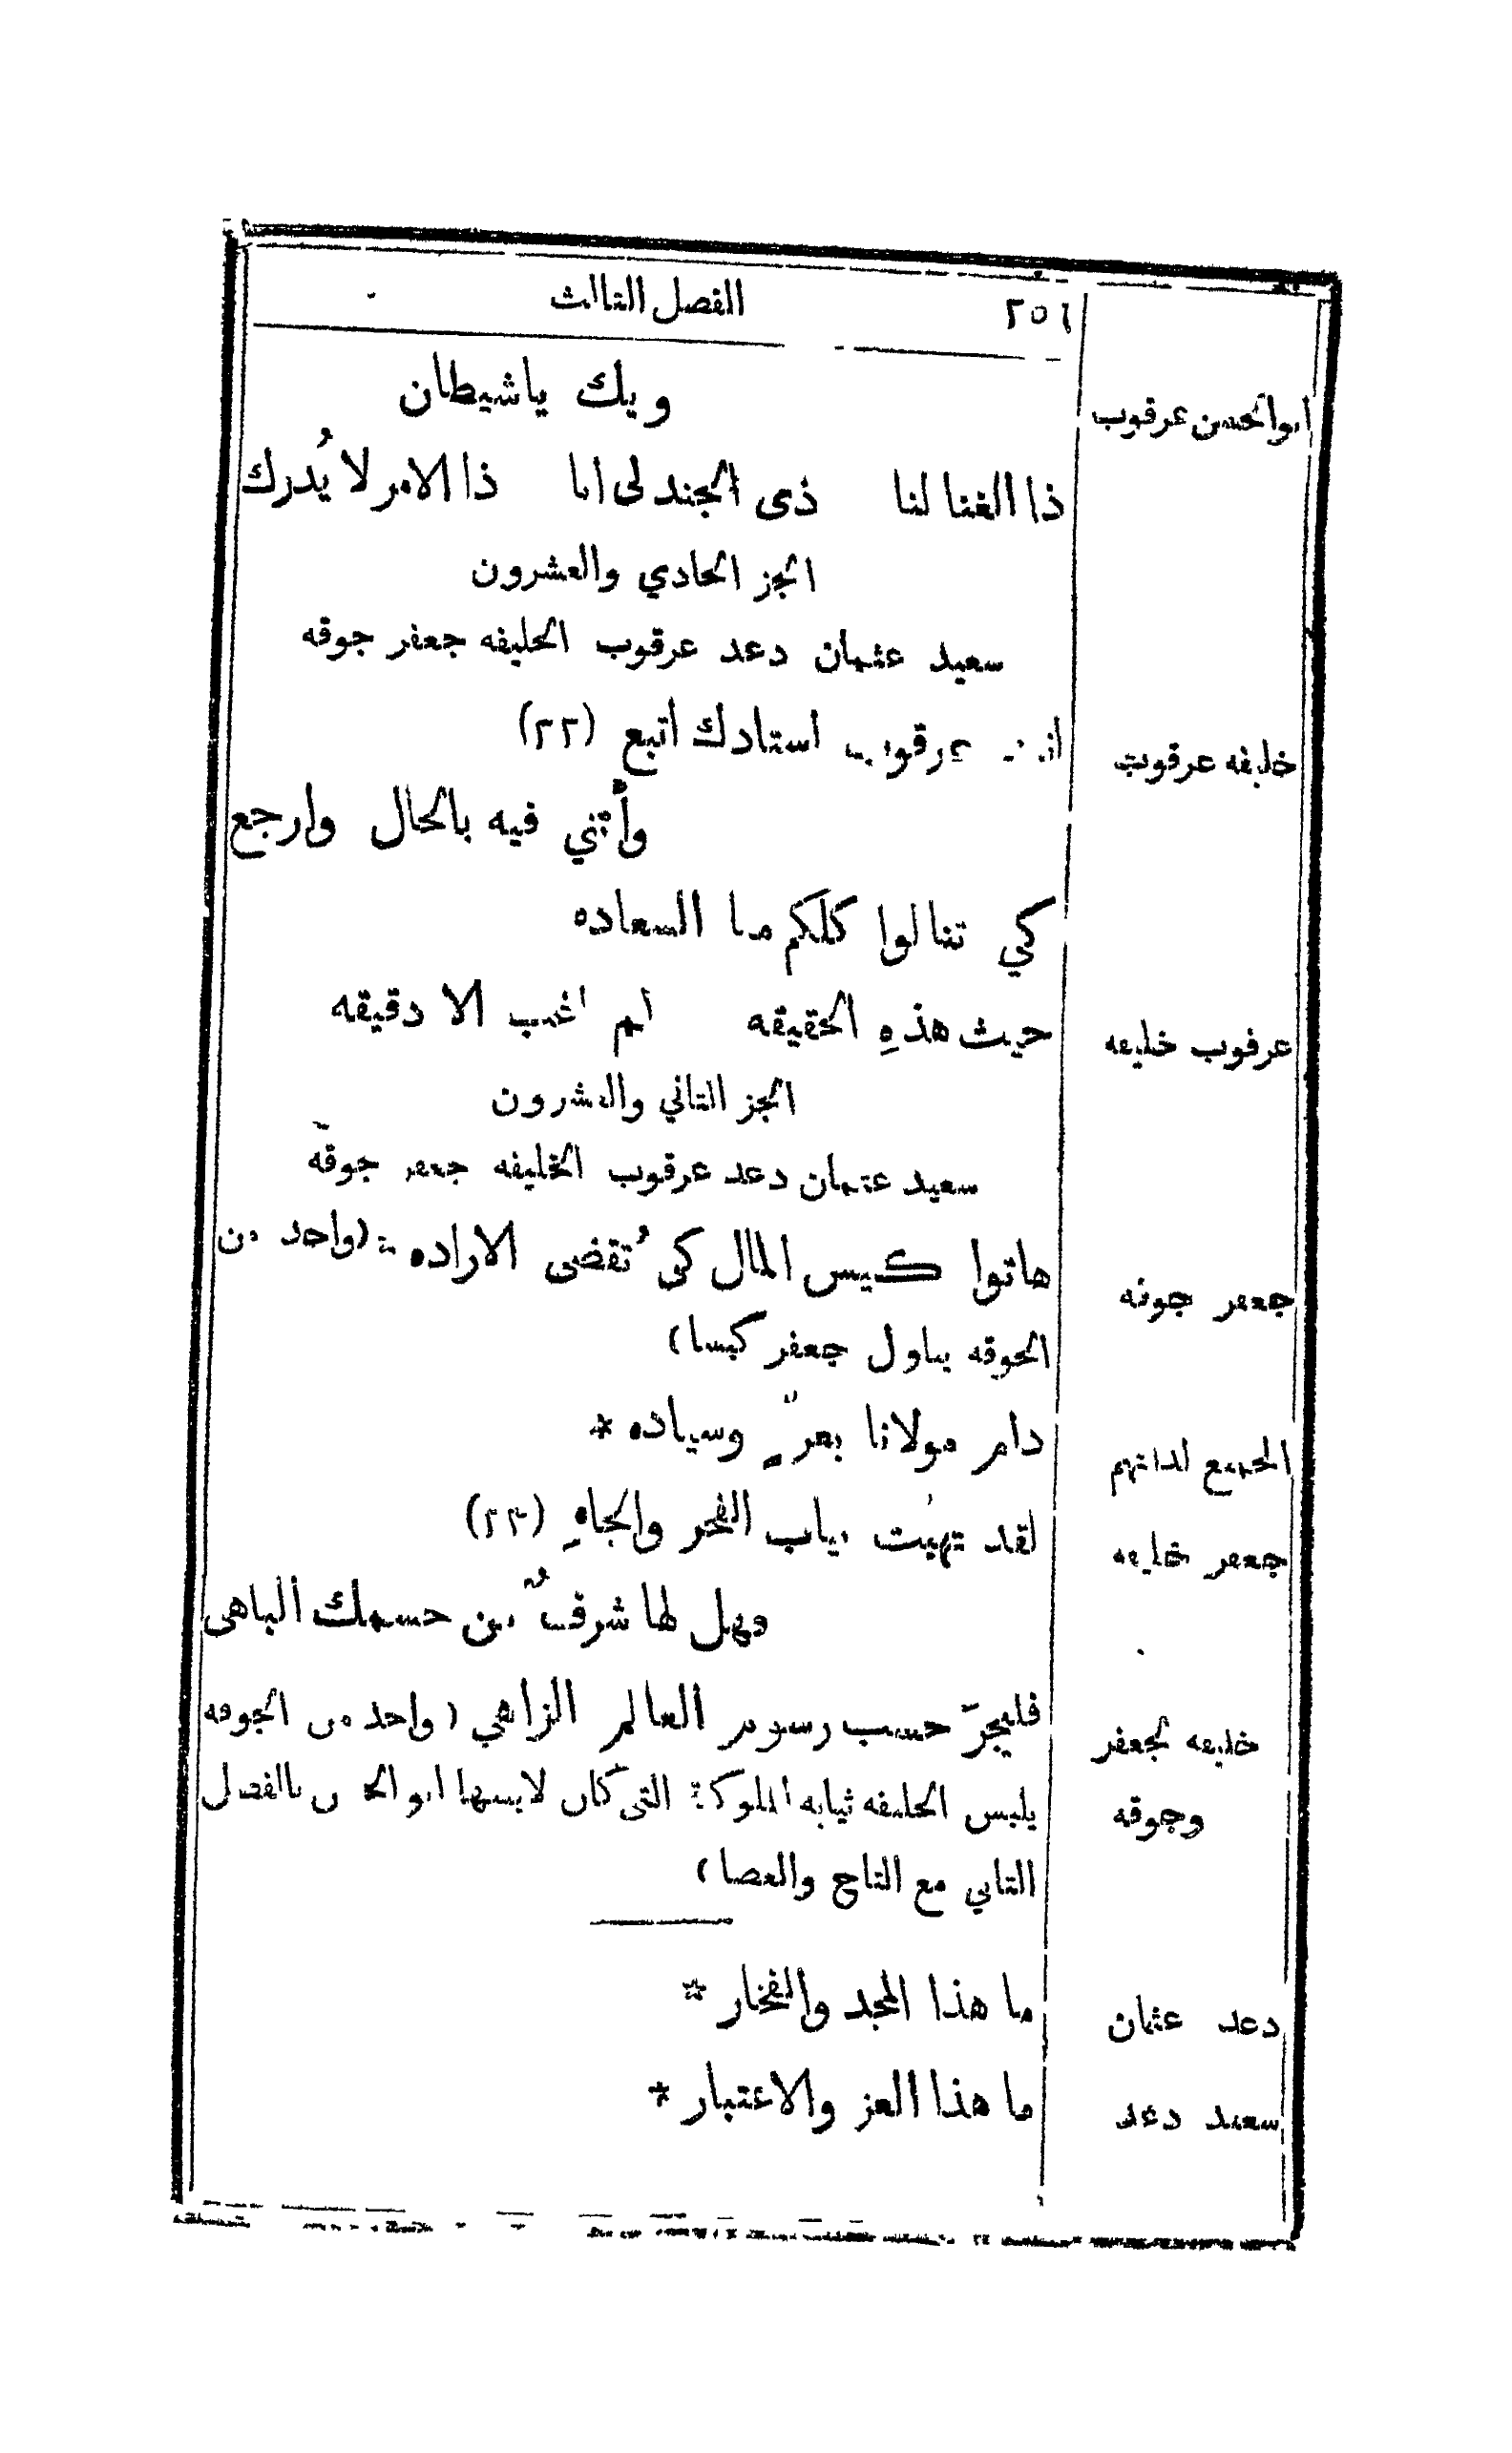 ٢٥٦ الفصل الثالث
ابو الحسن عرقوب ويك ياشيطان
ذا الغنا لنا ذى الجند لى انا ذا الامر لا يُدرك
الجز الحادي والعشرون
سعيد عثمان دعد عرقوب الخليفه جعفر جوقه
خليفه عرقوب عرقوب استادك أتبع (٢٢)
وأثني فيه بالحال وارجع
كي تنالوا كلكم ما السعاده
عرقوب خليفه حيث هذهِ الحقيقه لم اغب الا دقيقه
الجز الثاني والعشرون
سعيد عثمان دعد عرقوب الخليفه جعفر جوقه
جعفر جوقه هاتوا كيس المال كى تُقضى الاراده * (واحد من
الجوقه يناول جعفر كيسا)
الجميع لذاتهم دام مولانا بعزٍّ وسياده *
جعفر خليفه لقد تهيئت ثياب الفخر والجاهِ (٢٣)
وهل لها شرفٌ من جسمك الباهى
خليفه لجعفر فليجرَ حسب رسوم العالم الزاهي (واحد من الجوقه
وجوقه يلبس الخليفه ثيابه الملوكية التى كان لابسها ابو الحسن بالفصل
الثاني مع التاج والعصا)
دعد عثمان ما هذا المجد والفخار *
سعيد دعد ما هذا العز والاعتبار *